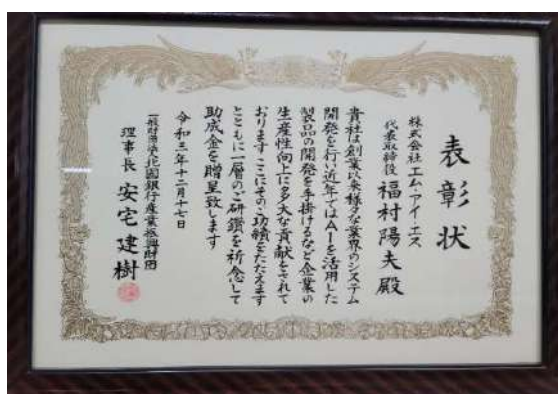 表彰状
株式会社エム・アイ・エス
代表取締役 福村陽夫殿
貴社は創業以来様々な業界のシステム
開発を行い近年ではAIを活用した
製品の開発を手掛けるなど企業の
生産性向上に多大な貢献をされて
おります ここにその功績をたたえます
とともに一層のご研鑽を祈念して
助成金を贈呈致します
令和三年十二月十七日
一般財団法人北國銀行産業振興財団
理事長 安宅建樹